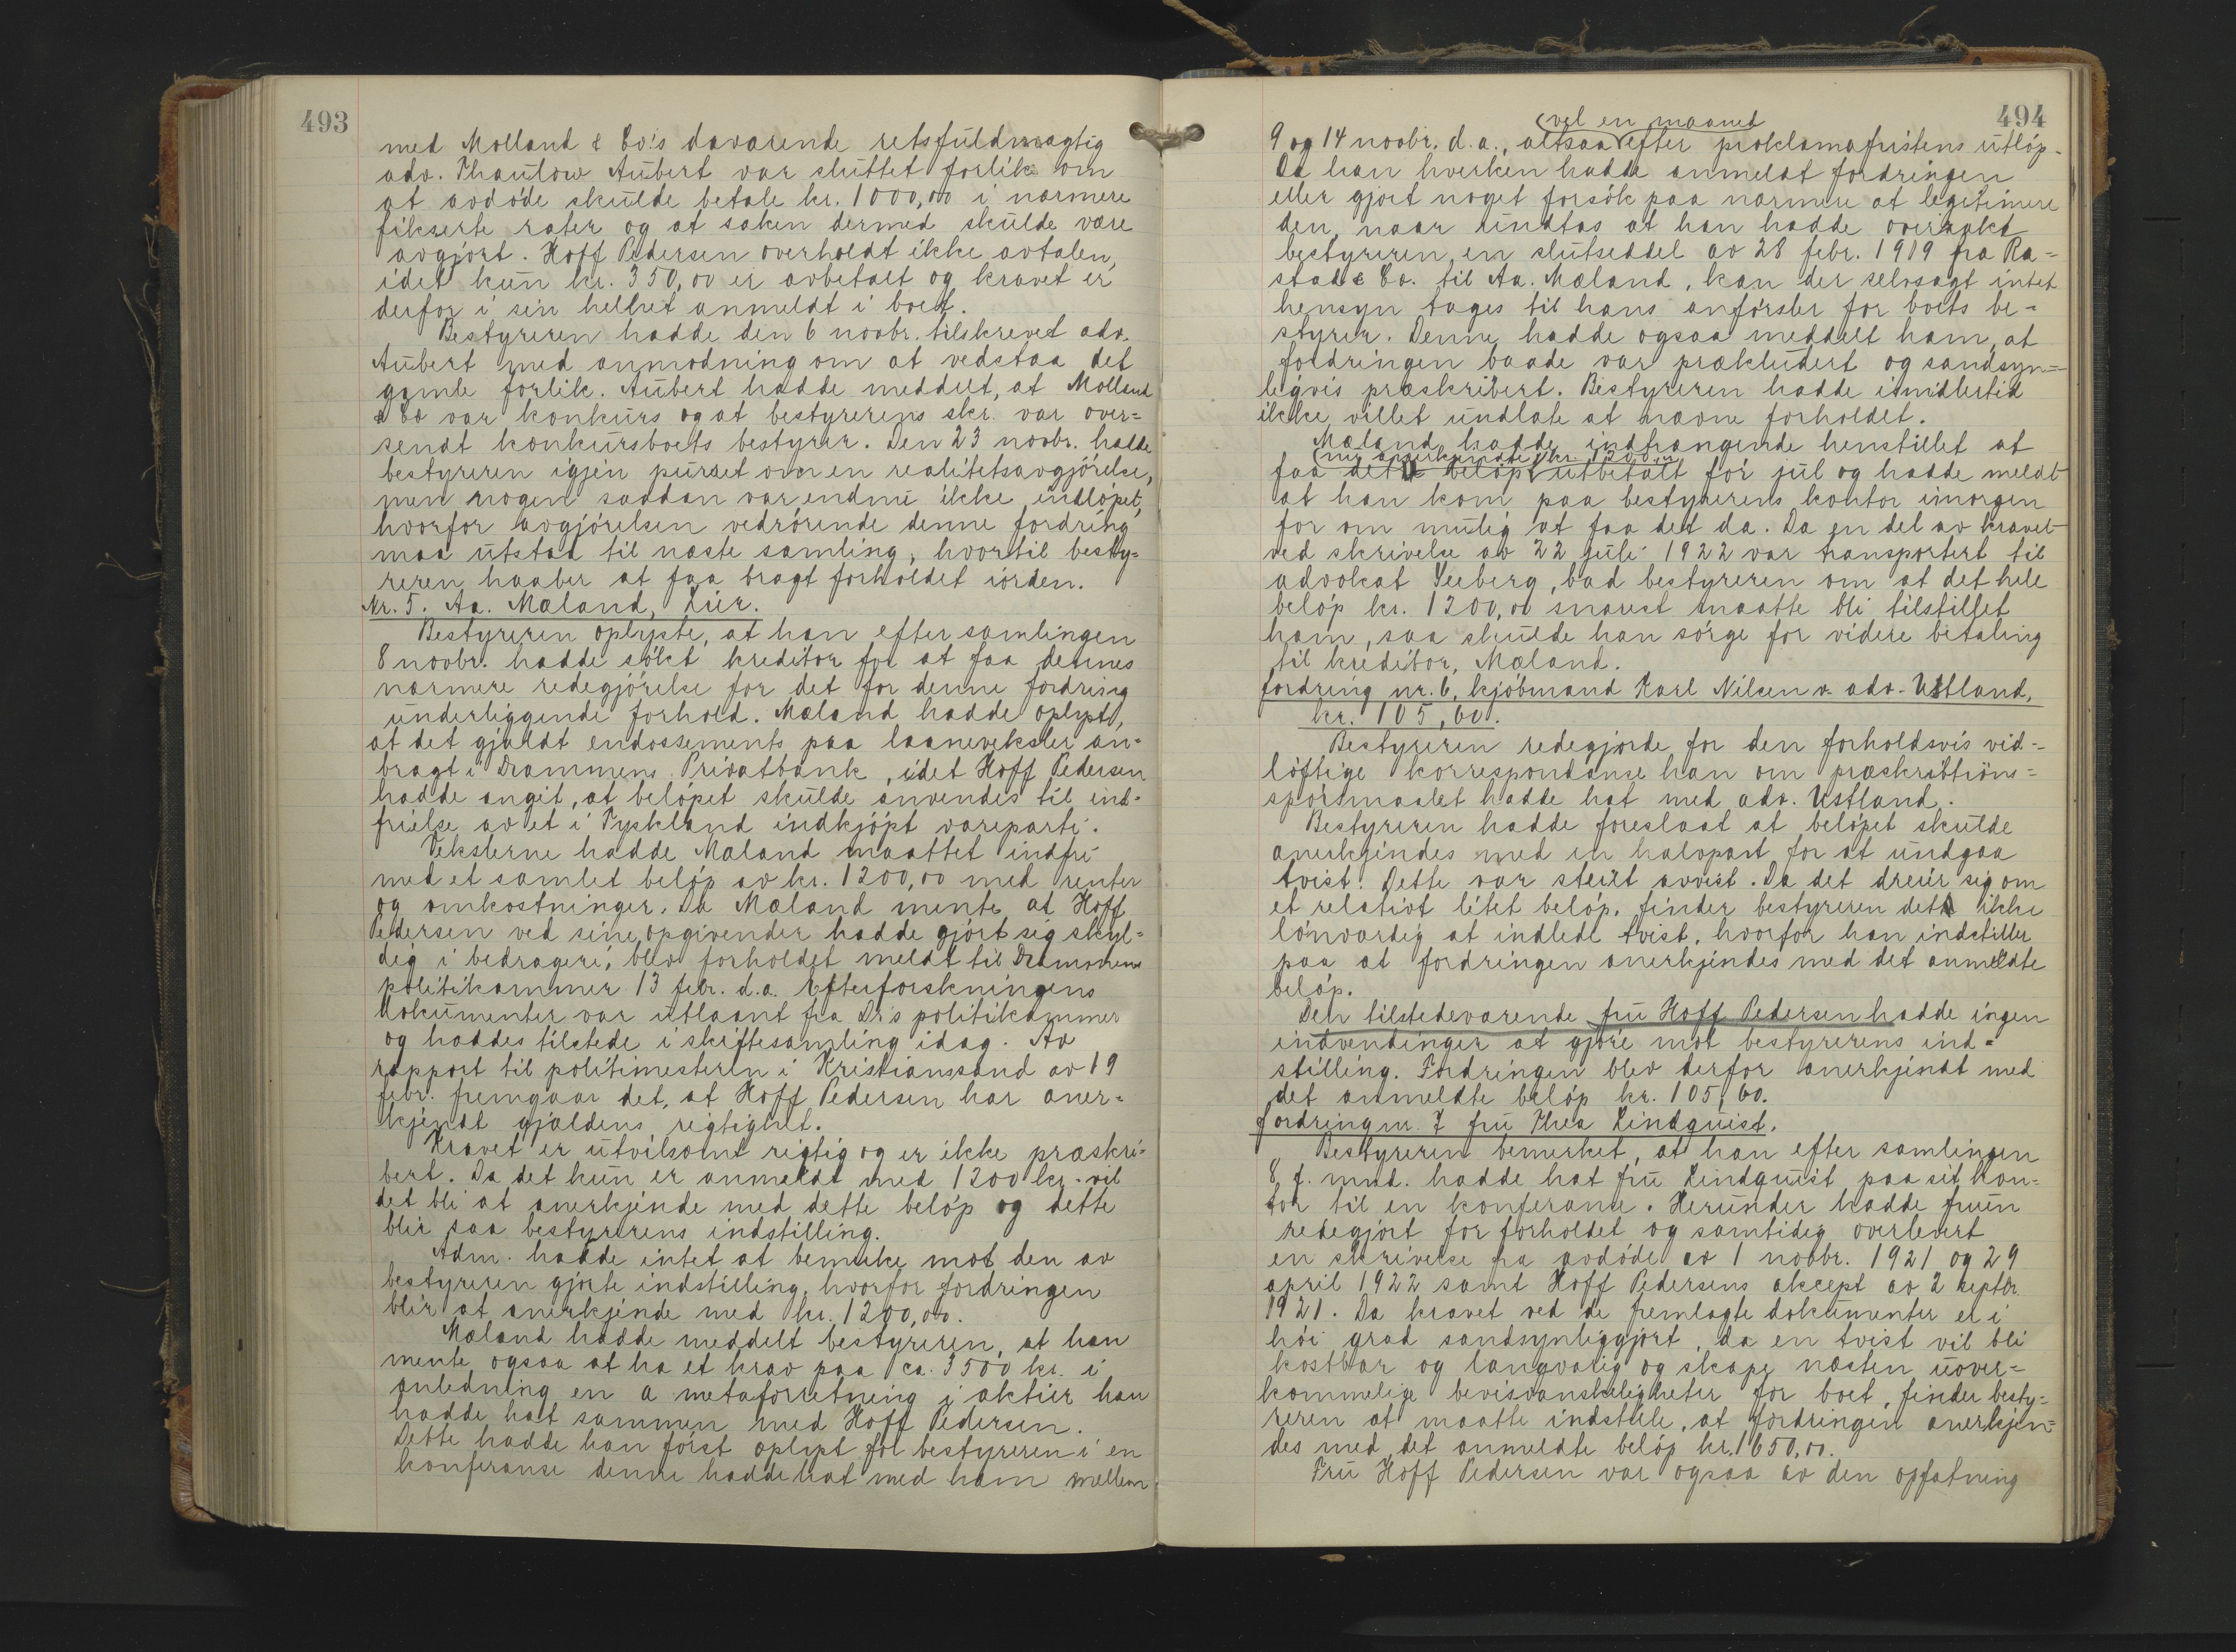 493
med Molland & Co's daværende retsfuldmægtig
adv. Thaulow Aubert var sluttet forlik om
at avdöde skulde betale kr. 1000,00 i nærmere
fikserte rater og at saken dermed skulde være
avgjort. Hoff Pedersen overholdt ikke avtalen,
idet kun kr. 350,00 er avbetalt og kravet er
derfor i sin helhet anmeldt i boet.
Bestyreren hadde den 6 novbr. tilskrevet adv.
Aubert med anmodning om at vedstaa det
gamle forlik. Aubert hadde meddelt, at Molland
& Co var konkurs og at bestyrerens skr. var over-
sendt konkursboets bestyrer. Den 23 novbr. hadde
bestyreren igjen purret om en realitetsavgjörelse,
men nogen saadan var endnu ikke indlöpet,
hvorfor avgjörelsen vedrörende denne fordring
maa utstaa til næste samling, hvortil besty-
reren haaber at faa bragt forholdet iorden.
Nr. 5. Aa. Mæland, Lier.
Bestyreren oplyste, at han efter samlingen
8 novbr. hadde sökt kreditor for at faa dennes
nærmere redegjörelse for det for denne fordring
underliggende forhold. Mæland hadde oplyst,
at det gjaldt endossements paa laaneveksler an-
bragt i Drammens Privatbank, idet Hoff Pedersen
hadde angit, at belöpet skulde anvendes til ind-
frielse av et i Tyskland indkjöpt vareparti.
Vekslerne hadde Mæland maattet indfri
med et samlet belöp av kr. 1200,00 med renter
og omkostninger. Da Mæland mente at Hoff
Pedersen ved sine opgivender hadde gjort sig skyl-
dig i bedrageri, blev forholdet meldt til Drammens
politikammer 13 febr. d.a. Efterforskningens
dokumenter var utlaant fra Dr's politikammer
og haddes tilstede i skiftesamling idag. Av
rapport til politimesteren i Kristianssand av 19
febr. fremgaar det, at Hoff Pedersen har aner-
kjendt gjældens rigtighet.
Kravet er utvilsomt rigtig og er ikke præskri-
bert. Da det kun er anmeldt med 1200 kr. vil
det bli at anerkjende med dette belöp og dette
blir saa bestyrerens indstilling.
Adm. hadde intet at bemerke mot den av
bestyreren gjorte indstilling, hvorfor fordringen
blir at anerkjende med kr. 1200,00.
Mæland hadde meddelt bestyreren, at han
mente ogsaa at ha et krav paa ca. 3500 kr. i
anledning en a metaforretning i aktier han
hadde hat sammen med Hoff Pedersen.
Dette hadde han först oplyst for bestyreren i en
konferanse denne hadde hat med ham mellem
494
vel en maaned
9 og 14 novbr. d.a., altsaa efter proklamafristens utlöp.
Da han hverken hadde anmeldt fordringen
eller gjort noget forsök paa nærmere at legitimere
den, naar undtas at han hadde overrakt
bestyreren en slutseddel av 28 febr. 1919 fra Ra-
stad & Co. til Aa. Mæland, kan der selvsagt intet
hensyn tages til hans anförsler for boets be-
styrer. Denne hadde ogsaa meddelt ham, at
fordringen baade var prækludert og sandsyn-
ligvis præskribert. Bestyreren hadde imidlertid
ikke villet undlate at nævne forholdet.
Mæland hadde indtrængende henstillet at
nu anerkjendte kr. 1200,00
faa det belöp utbetalt för jul og hadde meldt
at han kom paa bestyrerens kontor imorgen
for om mulig at faa det da. Da en del av kravet
ved skrivelse av 22 juli 1922 var transportert til
advokat Seeberg, bad bestyreren om at det hele
belöp kr. 1200,00 snarest maatte bli tilstillet
ham, saa skulde han sörge for videre betaling
til kreditor, Mæland.
Fordring nr. 6, kjöbmand Karl Nilsen v. adv. Ustland,
kr. 105,60.
Bestyreren redegjorde for den forholdsvis vid-
löftige korrespondanse han om præskriptions-
spörsmaalet hadde hat med adv. Ustland.
Bestyreren hadde foreslaat at belöpet skulde
anerkjendes med en halvpart for at undgaa
tvist. Dette var steilt avvist. Da det dreier sig om
et relativt litet belöp, finder bestyreren det ikke
lönværdig at indlede tvist, hvorfor han indstiller
paa at fordringen anerkjendes med det anmeldte
belöp.
Den tilstedeværende fru Hoff Pedersen hadde ingen
indvendinger at gjöre mot bestyrerens ind-
stilling. Fordringen blev derfor anerkjendt med
det anmeldte belöp kr. 105,60.
Fordring nr. 7 fru Thea Lindquist.
Bestyreren bemerket, at han efter samlingen
8 f. mnd. hadde hat fru Lindquist paa sit kon-
tor til en konferanse. Herunder hadde fruen
redegjort for forholdet og samtidig overlevert
en skrivelse fra avdöde av 1 novbr. 1921 og 29
april 1922 samt Hoff Pedersens akcept av 2 septbr.
1921. Da kravet ved de fremlagte dokumenter er i
höi grad sandsynliggjort, da en tvist vil bli
kostbar og langvarig og skape næsten uover-
kommelige bevisvanskeligheter for boet, finder besty-
reren at maatte indstille, at fordringen anerkjen-
des med det anmeldte belöp kr. 1650,00.
Fru Hoff Pedersen var ogsaa av den opfatning